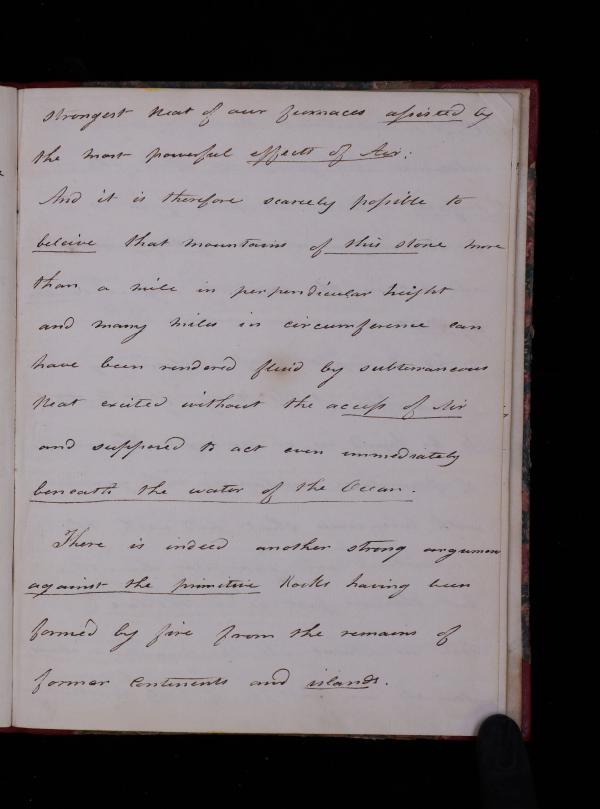 strongest heat of our furnaces assisted by
the most powerful effects of Air.
And it is therefore scarcely possible to
beleive that mountains of this stone more
than a mile in perpendicular height
and many miles in circumference can
have been rendered fluid by subterraneous
heat excited without the access of Air
and supposed to act even immediately
beneath the water of the Ocean.
There is indeed another strong argumen
against the primitive Rocks having been
formed by fire from the remains of
former Continents and islands.